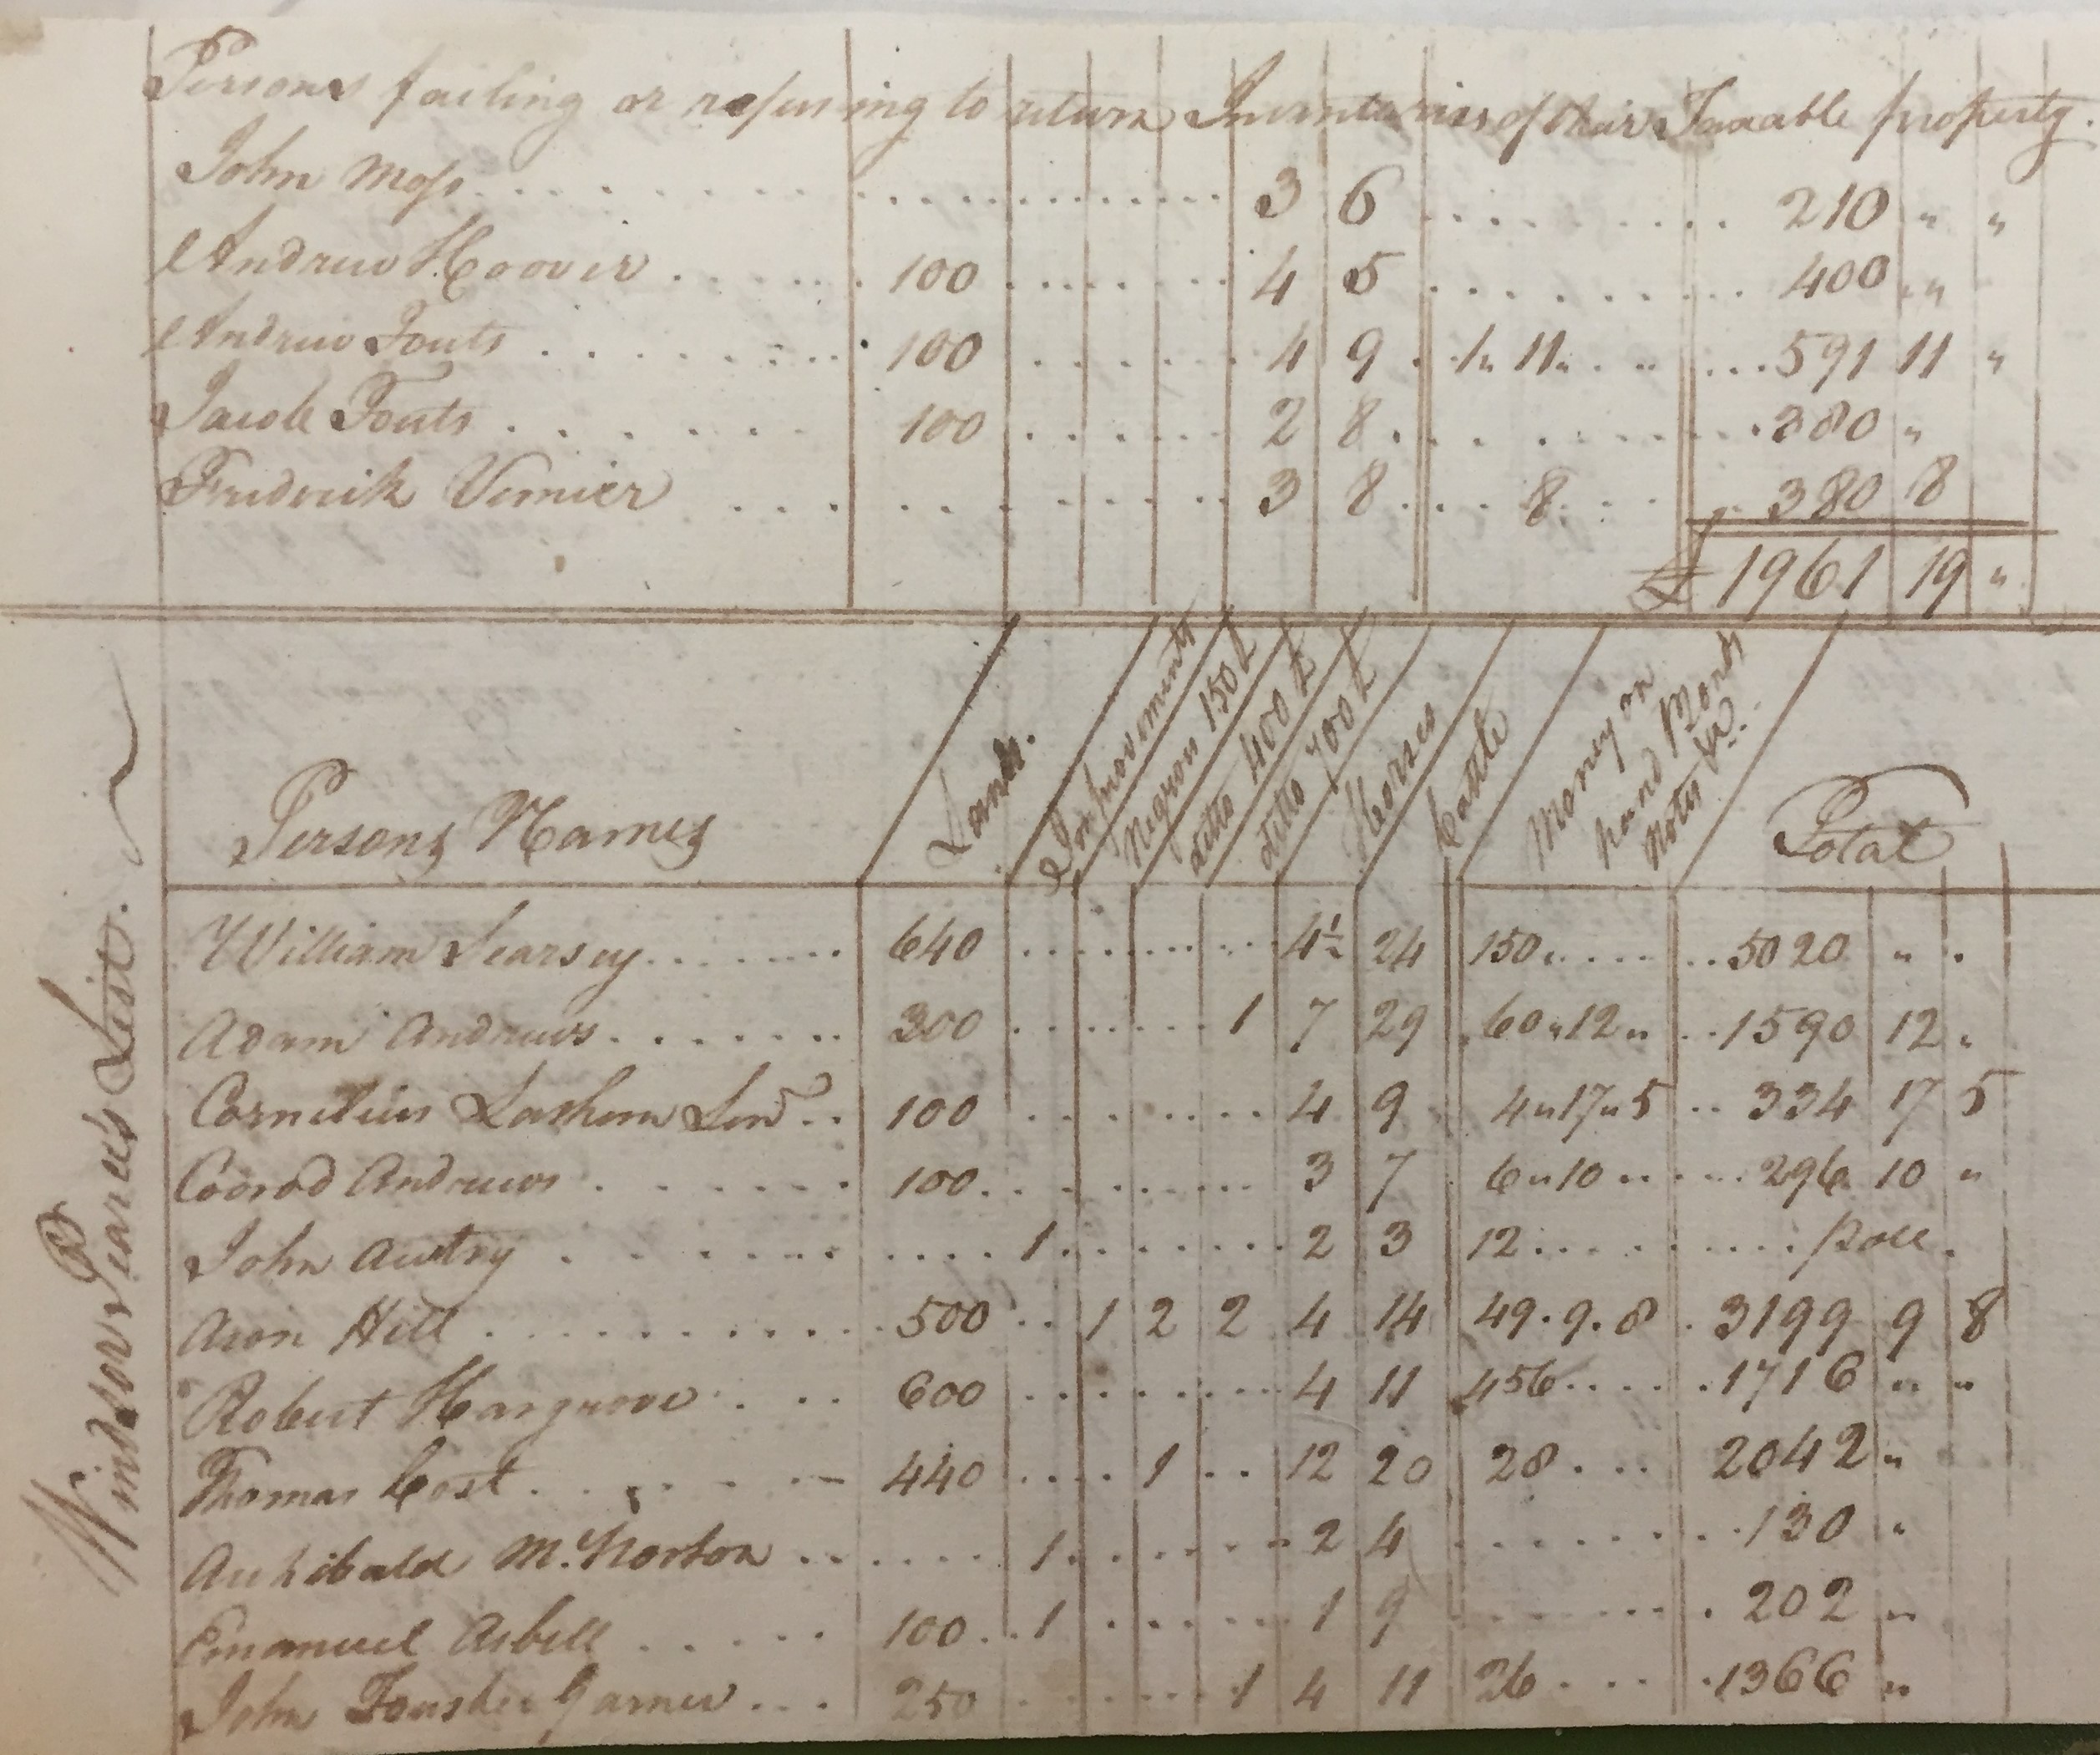 Persons failing or refusing to return Inventories of their Taxable property.
John Moss 3 6 210 " "
Andrew Hoover 100 4 5 400 " "
Andrew Fouts 100 4 9 1" 11" " 591 11 "
Jacob Fouts 100 2 8 380 "
Fredrick Vernier 3 8 8 380 8
£ 1961 19 "
Windsor Pearce's List.
Persons Names Lands. Improvements Negroes 150£ ditto 400£ ditto 700£ Horses Cattle Money on hand Bonds Notes &c. Total
William Searsey 640 4½ 24 150 " 5020 " "
Adam Andrews 300 1 7 29 60 " 12 " 1590 12 "
Cornelius Senr. 100 4 9 4 " 17 " 5 334 17 5
Coonrod Andrews 100 3 7 6 " 10 " 296 10 "
John Autry 1 2 3 12 Pole.
Aron Hill 500 1 2 2 4 14 49 . 9 . 8 3199 9 8
Robert Hargrove 600 4 11 456 1716 " "
Thomas Cost 440 1 12 20 28 2042 "
Archibald M. Norton 1 2 4 130 "
Emanuel Asbell 100 1 1 9 202 "
John Foushee Garner 250 1 4 11 26 1366 "